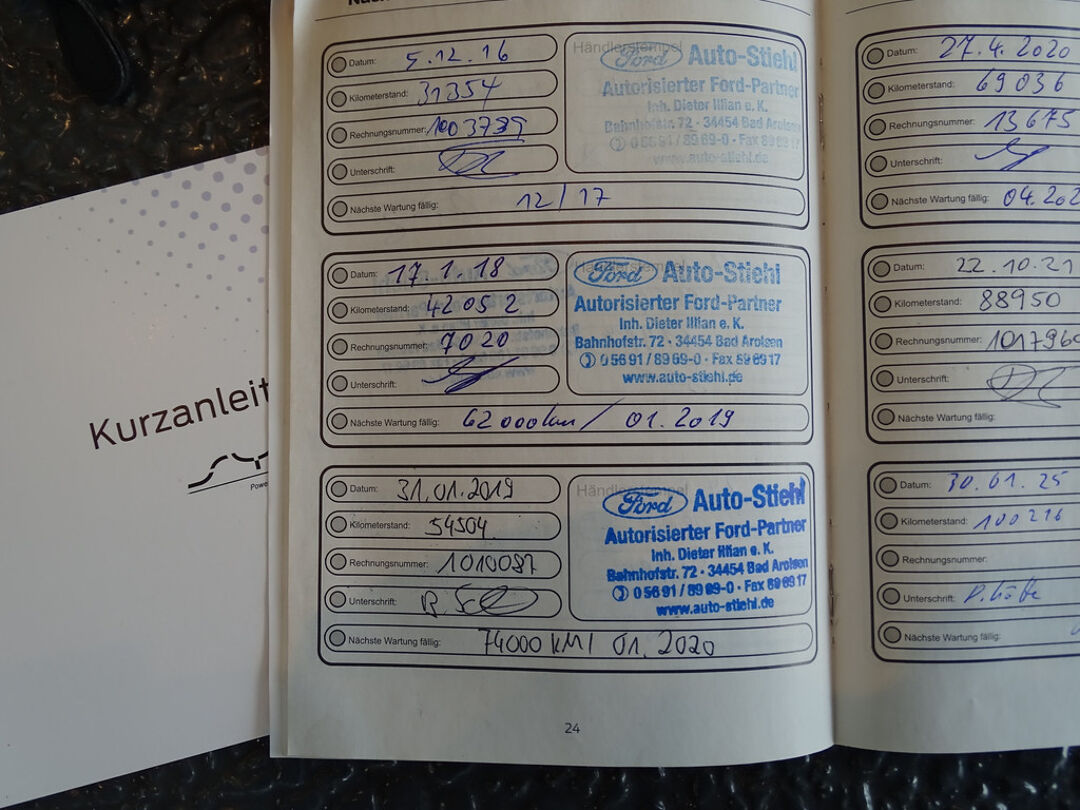 Kurzanleit
Datum: 5.12.16
Kilometerstand: 31354
Rechnungsnummer: 1003789
Unterschrift:
Nächste Wartung fällig: 12/17
Händlerstempel
Ford Auto-Stiehl
Autorisierter Ford-Partner
Inh. Dieter Illian e. K.
Bahnhofstr. 72 · 34454 Bad Arolsen
0 56 91 / 89 69-0 · Fax 89 69 17
www.auto-stiehl.de
Datum: 17.1.18
Kilometerstand: 42052
Rechnungsnummer: 7020
Unterschrift:
Nächste Wartung fällig: 62000km/ 01.2019
Ford Auto-Stiehl
Autorisierter Ford-Partner
Inh. Dieter Illian e. K.
Bahnhofstr. 72 · 34454 Bad Arolsen
0 56 91 / 89 69-0 · Fax 89 69 17
www.auto-stiehl.de
Datum: 31.01.2019
Kilometerstand: 54504
Rechnungsnummer: 1010087
Unterschrift:
Nächste Wartung fällig: 74000 KM/ 01.2020
Händlerstempel
Ford Auto-Stiehl
Autorisierter Ford-Partner
Inh. Dieter Illian e. K.
Bahnhofstr. 72 · 34454 Bad Arolsen
0 56 91 / 89 69-0 · Fax 89 69 17
www.auto-stiehl.de
24
Datum: 27.4.2020
Kilometerstand: 69036
Rechnungsnummer: 13675
Unterschrift:
Nächste Wartung fällig: 04.202
Datum: 22.10.21
Kilometerstand: 88950
Rechnungsnummer: 1017960
Unterschrift:
Nächste Wartung fällig:
Datum: 30.01.25
Kilometerstand: 100216
Rechnungsnummer:
Unterschrift:
Nächste Wartung fällig: